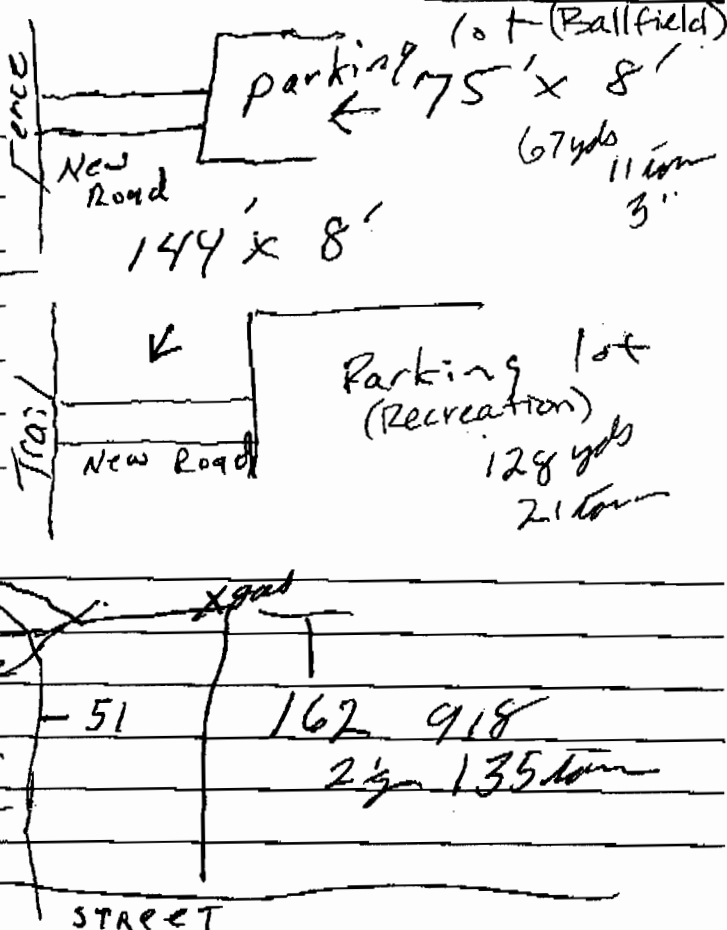 lot (Ballfield)
Fence
parking
← 75' x 8'
67 yds
11 ton
3"
New
Road
144' x 8'
Trail
New Road
Parking lot
(Recreation)
128 yds
21 ton
x gas
51 162 918
2½ 135 ton
STREET